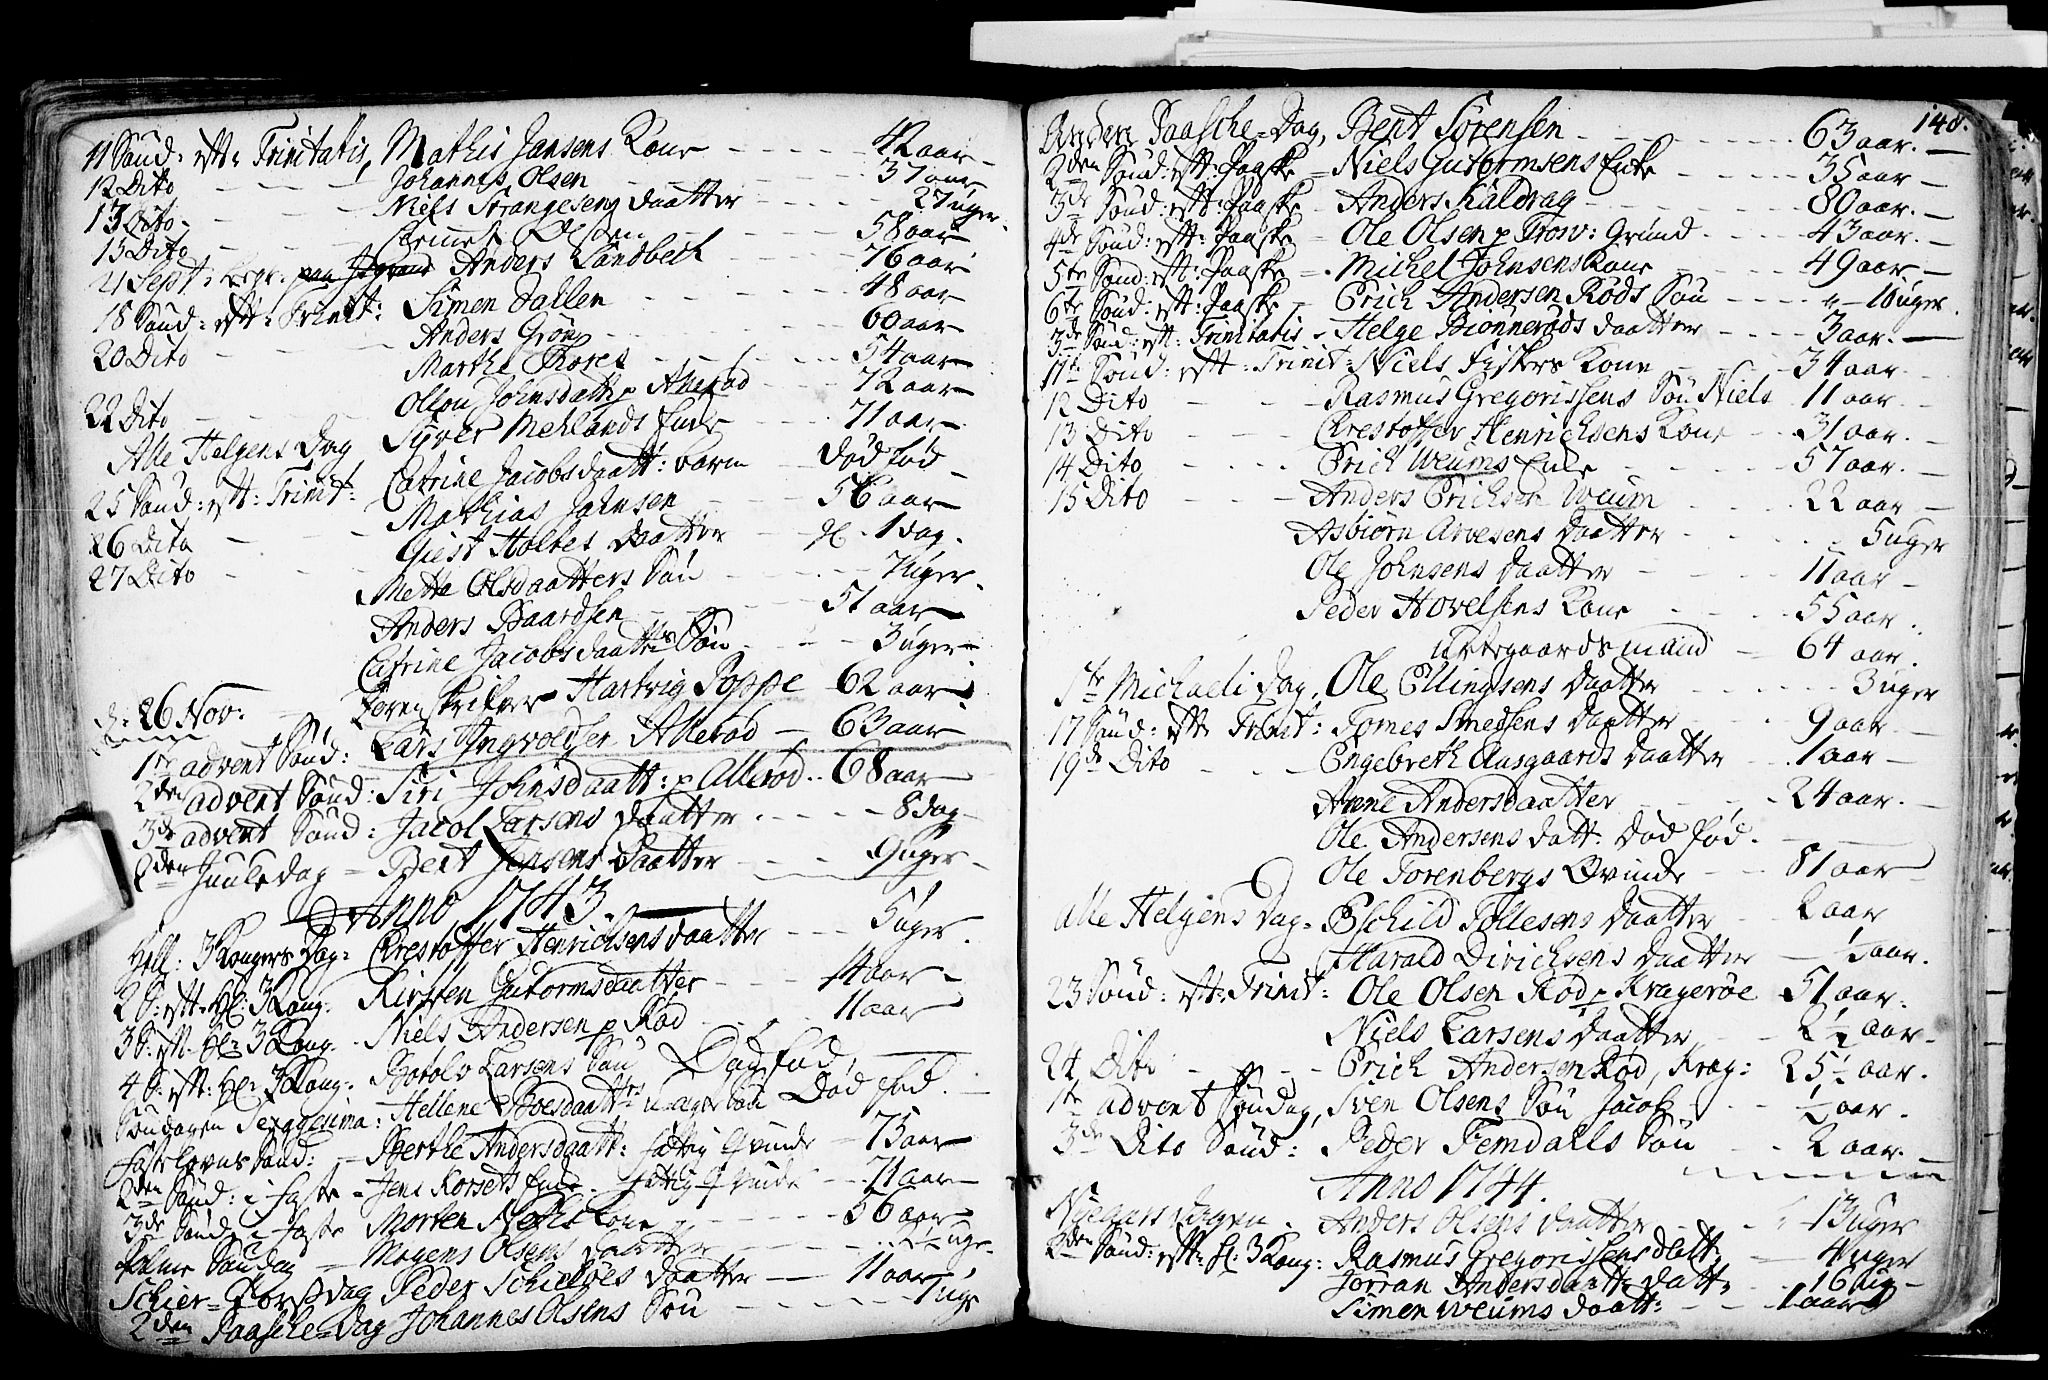 11 Sønd: eftr Trinitatis, Mathis Jansens Kone - - - - 42 aar -
12 Dito - - - Johannes Olsen - - - - 37 aar
13 Dito - - - Niels Strangesens daatter - - - - 27 uger.
15 Dito - - - Olsen - - - - 58 aar
21 Sept: begr. Anders Sandbech - - - 76 aar
18 Sønd: eftt: Trinit: Simen Dallen - - - - 48 aar
Anders Grøn - - - - 60 aar
20 Dito - - - Marthe Thores - - - - 54 aar
Ollou Johnsdattr p Allerød - - - 72 aar
22 Dito - - - Syver Mehlands Enke - - - 71 aar
Alle Helgens Dag Catrine Jacobsdaatt: barn - død fød -
25 Sønd: eftt: Trinit: Mathias Johnsen - - - 56 aar
26 Dito - - - Giest Holtes daatter - 1 dag.
27 Dito - - - Mette Olsdaatters Søn - - - 7 uger.
Anders Baardsen - - - - 51 aar
Catrine Jacobsdaatters Søn - - - 3 uger
d: 26 Nov: - Sorenskriver Hartvig Poppe 62 aar
1te advent Sønd: Lars Ingvoldsen Allerød - 63 aar
2den advent Sønd: Siri Johnsdaatt: p Allerød - 68 aar
3de advent Sønd: Jacob Larsens daatter - - - - 8 dag
2den Juule dag = Bent Jensens Daatter - - - 9 uger -
Anno 1743.
Hell: 3 Kongers Dag = Chrestoffer Henrichsens daatter - - - 5 uger.
2 S: eftt: Hl: 3 Kong. Kirsten Gutormsdaatter - - - 4 aar -
3 S: eft. Hl: 3 Kong. Niels Andersen p Rød - - - 11 aar
4 S: eftt: Hl: 3 Kong. Botolv Larsens Søn Død fød,
Søndagen Sexagesima: Hellene Boesdaatters Søn Død fød.
Fastelavns Sønd: - Berthe Andersdaatt: fattig Qvinde - 75 aar
2den Sønd: i faste - Jens Korsets Enke. fattig Qvinde - - 71 aar -
3de Søndag i faste Morten Kone - - - 56 aar
Palme Søndag = Mogens Olsens daatter - - - uge
Schier-Torsdag Peder daatter - - 11 aar
2den Paasche-dag Johannes Olsens Søn - - - 7 uge
148.
Anden Paasche-Dag, Bent Sørensen - - - - 63 aar.
2den Sønd: eftt: Paaske - Niels Gutormsens Enke - - - 35 aar -
3de Sønd: eftt: Paaske - Anders Kaldrag - - - - 80 aar. -
4de Sønd: eftt: Paaske - Ole Olsen p Trosv: Grund - - - 43 aar. -
5te Sønd: eft: Paaske - Michel Johnsens Kone - - - 49 aar -
6te Sønd: eftt: Paaske - Erich Andersen Røds Søn - - - 10 uger.
3de Sønd: eft: Trinitatis - Helge Biønnerøds daatter - - - 3 aar. -
11te Sønd: eftt: Trinit: Niels Fiskers Kone - - - 34 aar
12 Dito - - - Rasmus Gregorissens Søn Niels 11 aar.
13 Dito - - - Chrestoffer Henrichsens Kone - - 31 aar.
14 Dito - - - - Erich Weums Enke - - - - 57 aar.
15 Dito - - - Anders Erichsen Weum - - - 22 aar -
Asbiørn Arvesens daatter - - - - 5 uger
Ole Johnsens daatter - - - - 11 aar -
Peder Hovelsens Kone - - - - 55 aar.
Urtegaardsmand - 64 aar.
1te Michaeli dag, Ole Ellingsens daatter - - - - 3 uger
17 Sønd: eftt Trinit: Tomes Smedsens daatter - - 9 aar.
19de Dito - - - Engebreth Aasgaards daatter - 1 aar -
Anne Andersdaatter - - - - 24 aar.
Ole Andersens datt: død fød. -
Ole Torenbergs Qvinde - - 81 aar
Alle Helgens Dag = Eschild Tollesens daatter - 2 aar
Harald Dirichsens daatter - ½ aar.
23 Sønd: eftt: Trinit: Ole Olsen Rød p Kragerøe 51 aar.
Niels Larsens daatter - - 2 ½ aar -
24 Dito - - - Erich Andersen Rød, Krag: 25 ½ aar.
1te advent Søndag, Sven Olsens Søn Jacob - - ½ aar.
3de Dito Sønd: Peder Femdalls Søn - - 2 aar. -
Anno 1744.
Nyeaars dagen - Anders Olsens daatter - - 13 uger
2den Sønd: eftt: Hl: 3 Kong: Rasmus Gregorissens datt: - 4 uger
Jorran Andersdaatt: datt: - 16 ug -
Simen Weums daatt: - - 1 aar